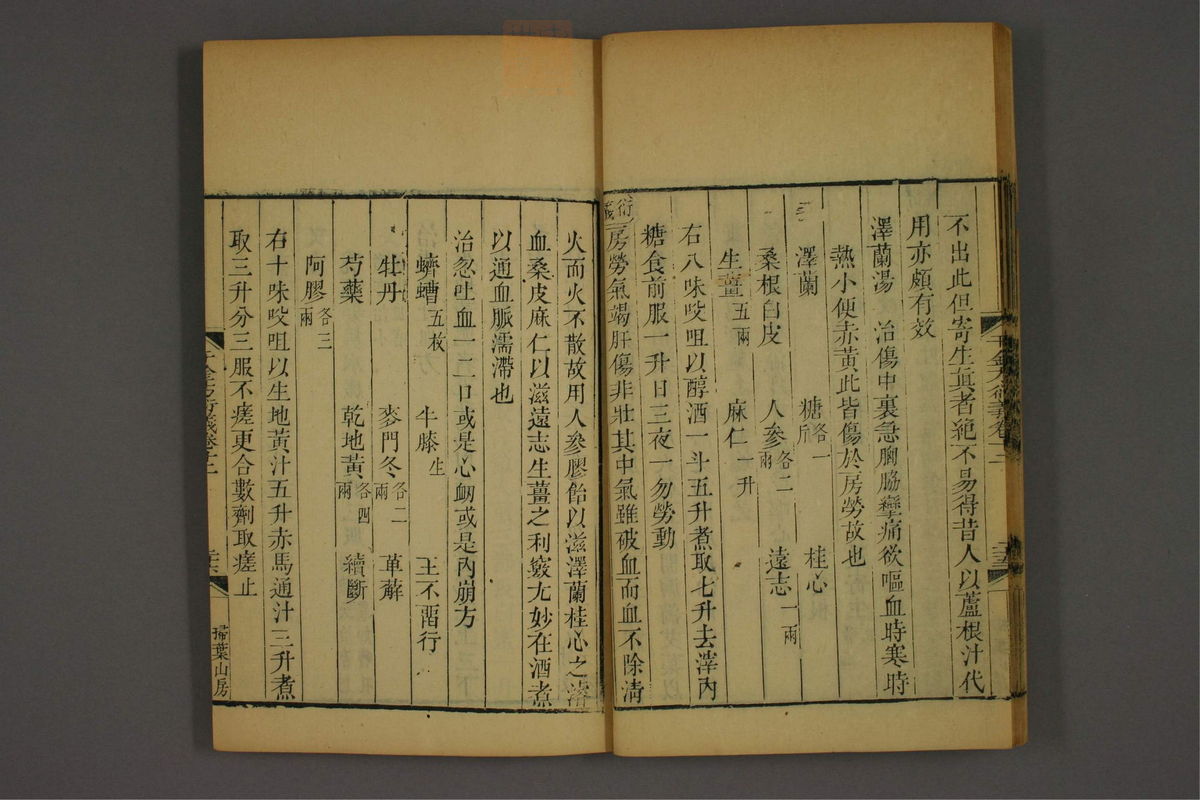 不出此但寄生眞者絕不易得昔人以蘆根汁代
用亦頗有效
澤蘭湯 治傷中裏急胸脇攣痛欲嘔血時寒時
熱小便赤黃此皆傷於房勞故也
澤蘭 糖各一斤 桂心
桑根白皮 人參各二兩 遠志一兩
生薑五兩 麻仁一升
右八味㕮咀以醇酒一斗五升煮取七升去滓內
糖食前服一升日三夜一勿勞動
衍義房勞氣竭肝傷非壯其中氣雖破血而血不除淸
火而火不散故用人參膠飴以滋澤蘭桂心之
血桑皮麻仁以滋遠志生薑之利竅尤妙在酒煮
以通血脈濡滯也
治忽吐血一二口或是心衄或是內崩方
蠐螬五枚 牛膝 王不留行
牡丹 麥門冬各二兩 萆薢
芍藥 乾地黃各四兩 續斷
阿膠各三兩
右十味㕮咀以生地黃汁五升赤馬通汁三升煮
取三升分三服不瘥更合數劑取瘥止
千金方衍義卷十二
掃葉山房